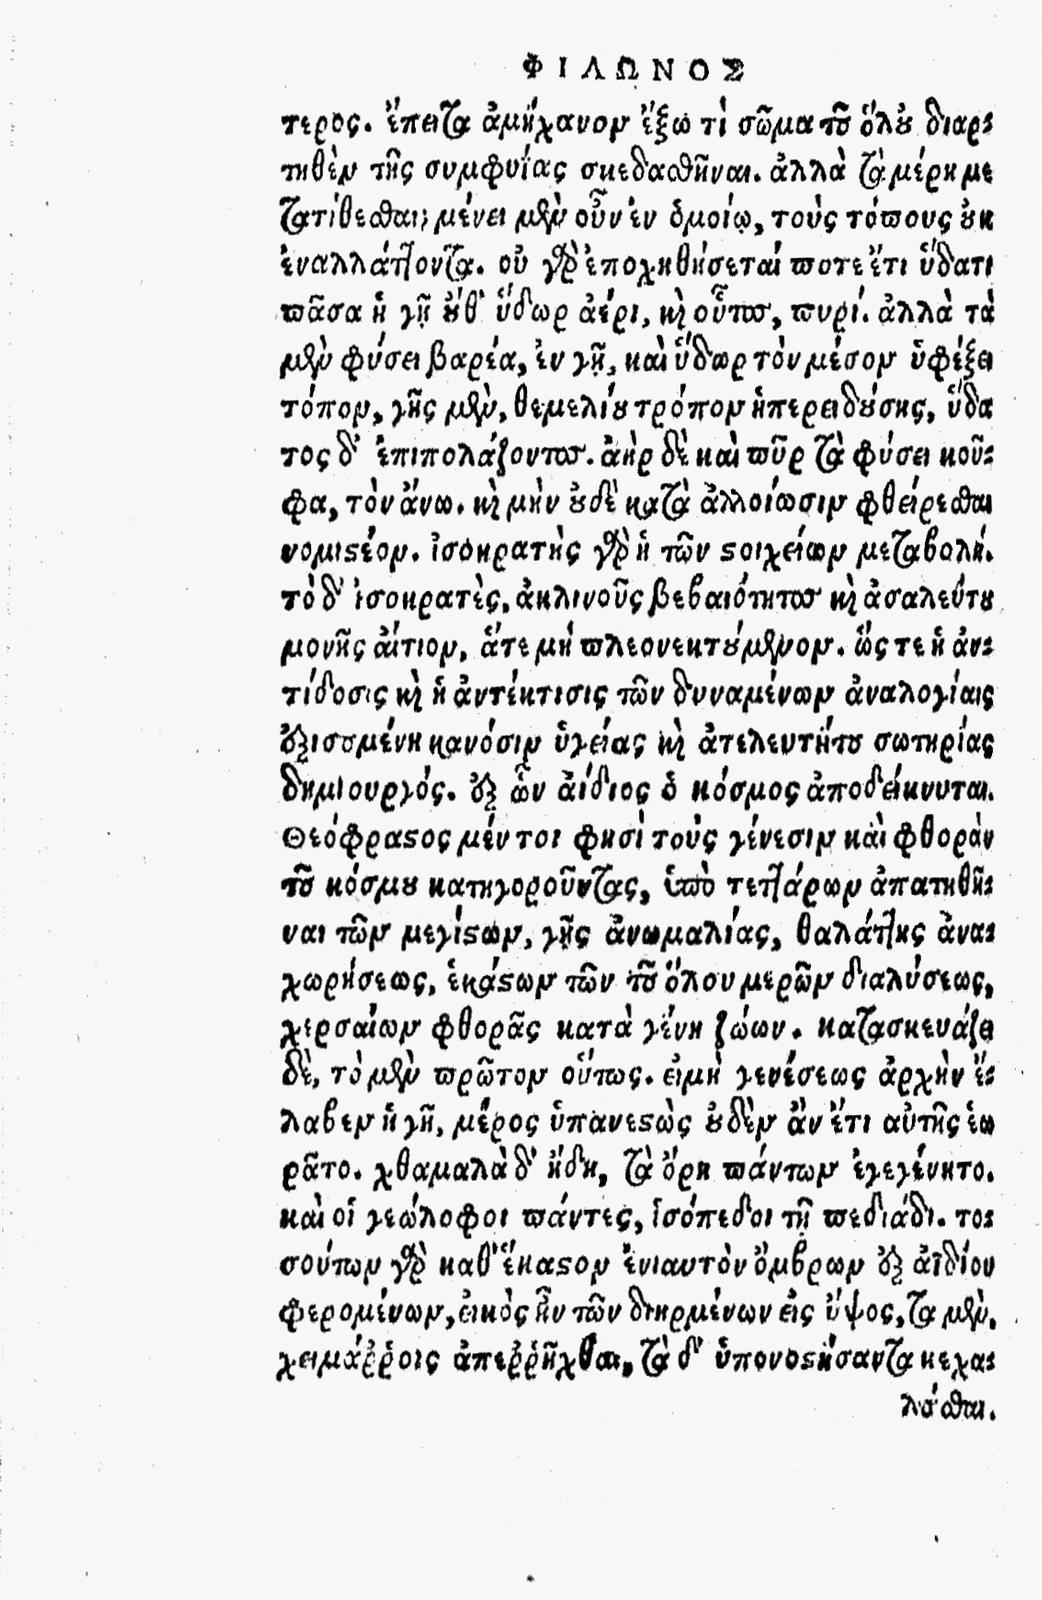 ΦΙΛΩΝΟΣ
τερος. ἔπειτα ἀμήχανον ἔξω τὶ σῶμα τοῦ ὅλου διαρ-
τηθὲν τῆς συμφυΐας σκεδασθῆναι. ἀλλὰ τὰ μέρη με
τατίθεσθαι; μένει μὲν οὖν ἐν ὁμοίῳ, τοὺς τόπους οὐκ
ἐναλλάττοντα. οὐ γὰρ ἐποχηθήσεταί ποτε ἔτι ὕδατι
πᾶσα ἡ γῆ οὐθ' ὕδωρ ἀέρι, καὶ οὗτος, πυρί. ἀλλὰ τὰ
μὲν φύσει βαρέα, ἐν γῇ, καὶ ὕδωρ τὸν μέσον ὑφέξει
τόπον, γῆς μὲν, θεμελίου τρόπον ἠπερειδούσης, ὕδα
τος δ' ἐπιπολάζοντος. ἀὴρ δὲ καὶ πῦρ τὰ φύσει κοῦ-
φα, τὸν ἄνω. καὶ μὴν οὐδὲ κατὰ ἀλλοίωσιν φθείρεσθαι
νομιστέον. ἰσοκρατὴς γὰρ ἡ τῶν στοιχείων μεταβολή.
τὸ δ' ἰσοκρατὲς, ἀκλινοῦς βεβαιότητος καὶ ἀσαλεύτου
μονῆς αἴτιον, ἅτε μή πλεονεκτούμενον. ὥς τε ἡ ἀν-
τίδοσις καὶ ἡ ἀντέκτισις τῶν δυναμένων ἀναλογίαις
ἐξισουμένη κανόσιν ὑγείας καὶ ἀτελευτήτου σωτηρίας
δημιουργός. ἐξ ὧν ἀίδιος ὁ κόσμος ἀποδείκνυται.
Θεόφραστος μέν τοι φησὶ τοὺς γένεσιν καὶ φθορὰν
τοῦ κόσμου κατηγοροῦντας, ὑπὸ τεττάρων ἀπατηθῆ-
ναι τῶν μεγίστων, γῆς ἀνωμαλίας, θαλάττης ἀνα-
χωρήσεως, ἑκάστων τῶν τοῦ ὅλου μερῶν διαλύσεως,
χερσαίων φθορᾶς κατὰ γένη ζώων. κατασκευάζει
δὲ, τὸ μὲν πρῶτον οὕτως. εἰ μὴ γενέσεως ἀρχὴν ἔ-
λαβεν ἡ γῆ, μέρος ὑπανεστὼς οὐδὲν ἂν ἔτι αὐτῆς ἑω
ρᾶτο. χθαμαλὰ δ' ἤδη, τὰ ὄρη πάντων ἐγεγένητο.
καὶ οἱ γεώλοφοι πάντες, ἰσόπεδοι τῇ πεδιάδι. το-
σούτων γὰρ καθ' ἕκαστον ἐνιαυτὸν ὄμβρων ἐξ ἀϊδίου
φερομένων, εἰκὸς ἦν τῶν διηρμένων εἰς ὕψος, τα μὲν,
χειμάῤῥοις ἀπεῤῥῆχθαι, τὰ δ' ὑπονοστήσαντα κεχα-
λάσθαι.